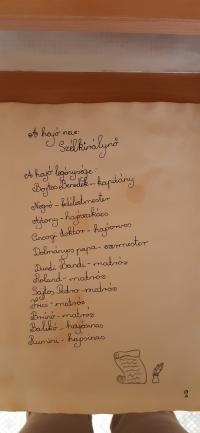 A hajó neve:
Szélkirálynő
A hajó legénysége:
Bojtos Benedek - kapitány
Negró - félélelmester
Ajtony - hajószakács
Csicsogi doktor - hajóorvos
Dolmányos papa - ezermester
Dundi Bandi - matróz
Roland - matróz
Sajtos Pedro - matróz
Frici - matróz
Brúnó - matróz
Balikó - hajósinas
Rumini - hajósinas
2